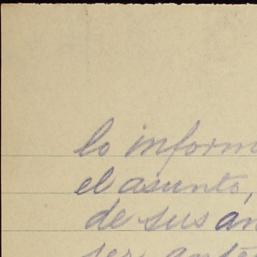 lo inform
el asunto,
de sus an
ser ante